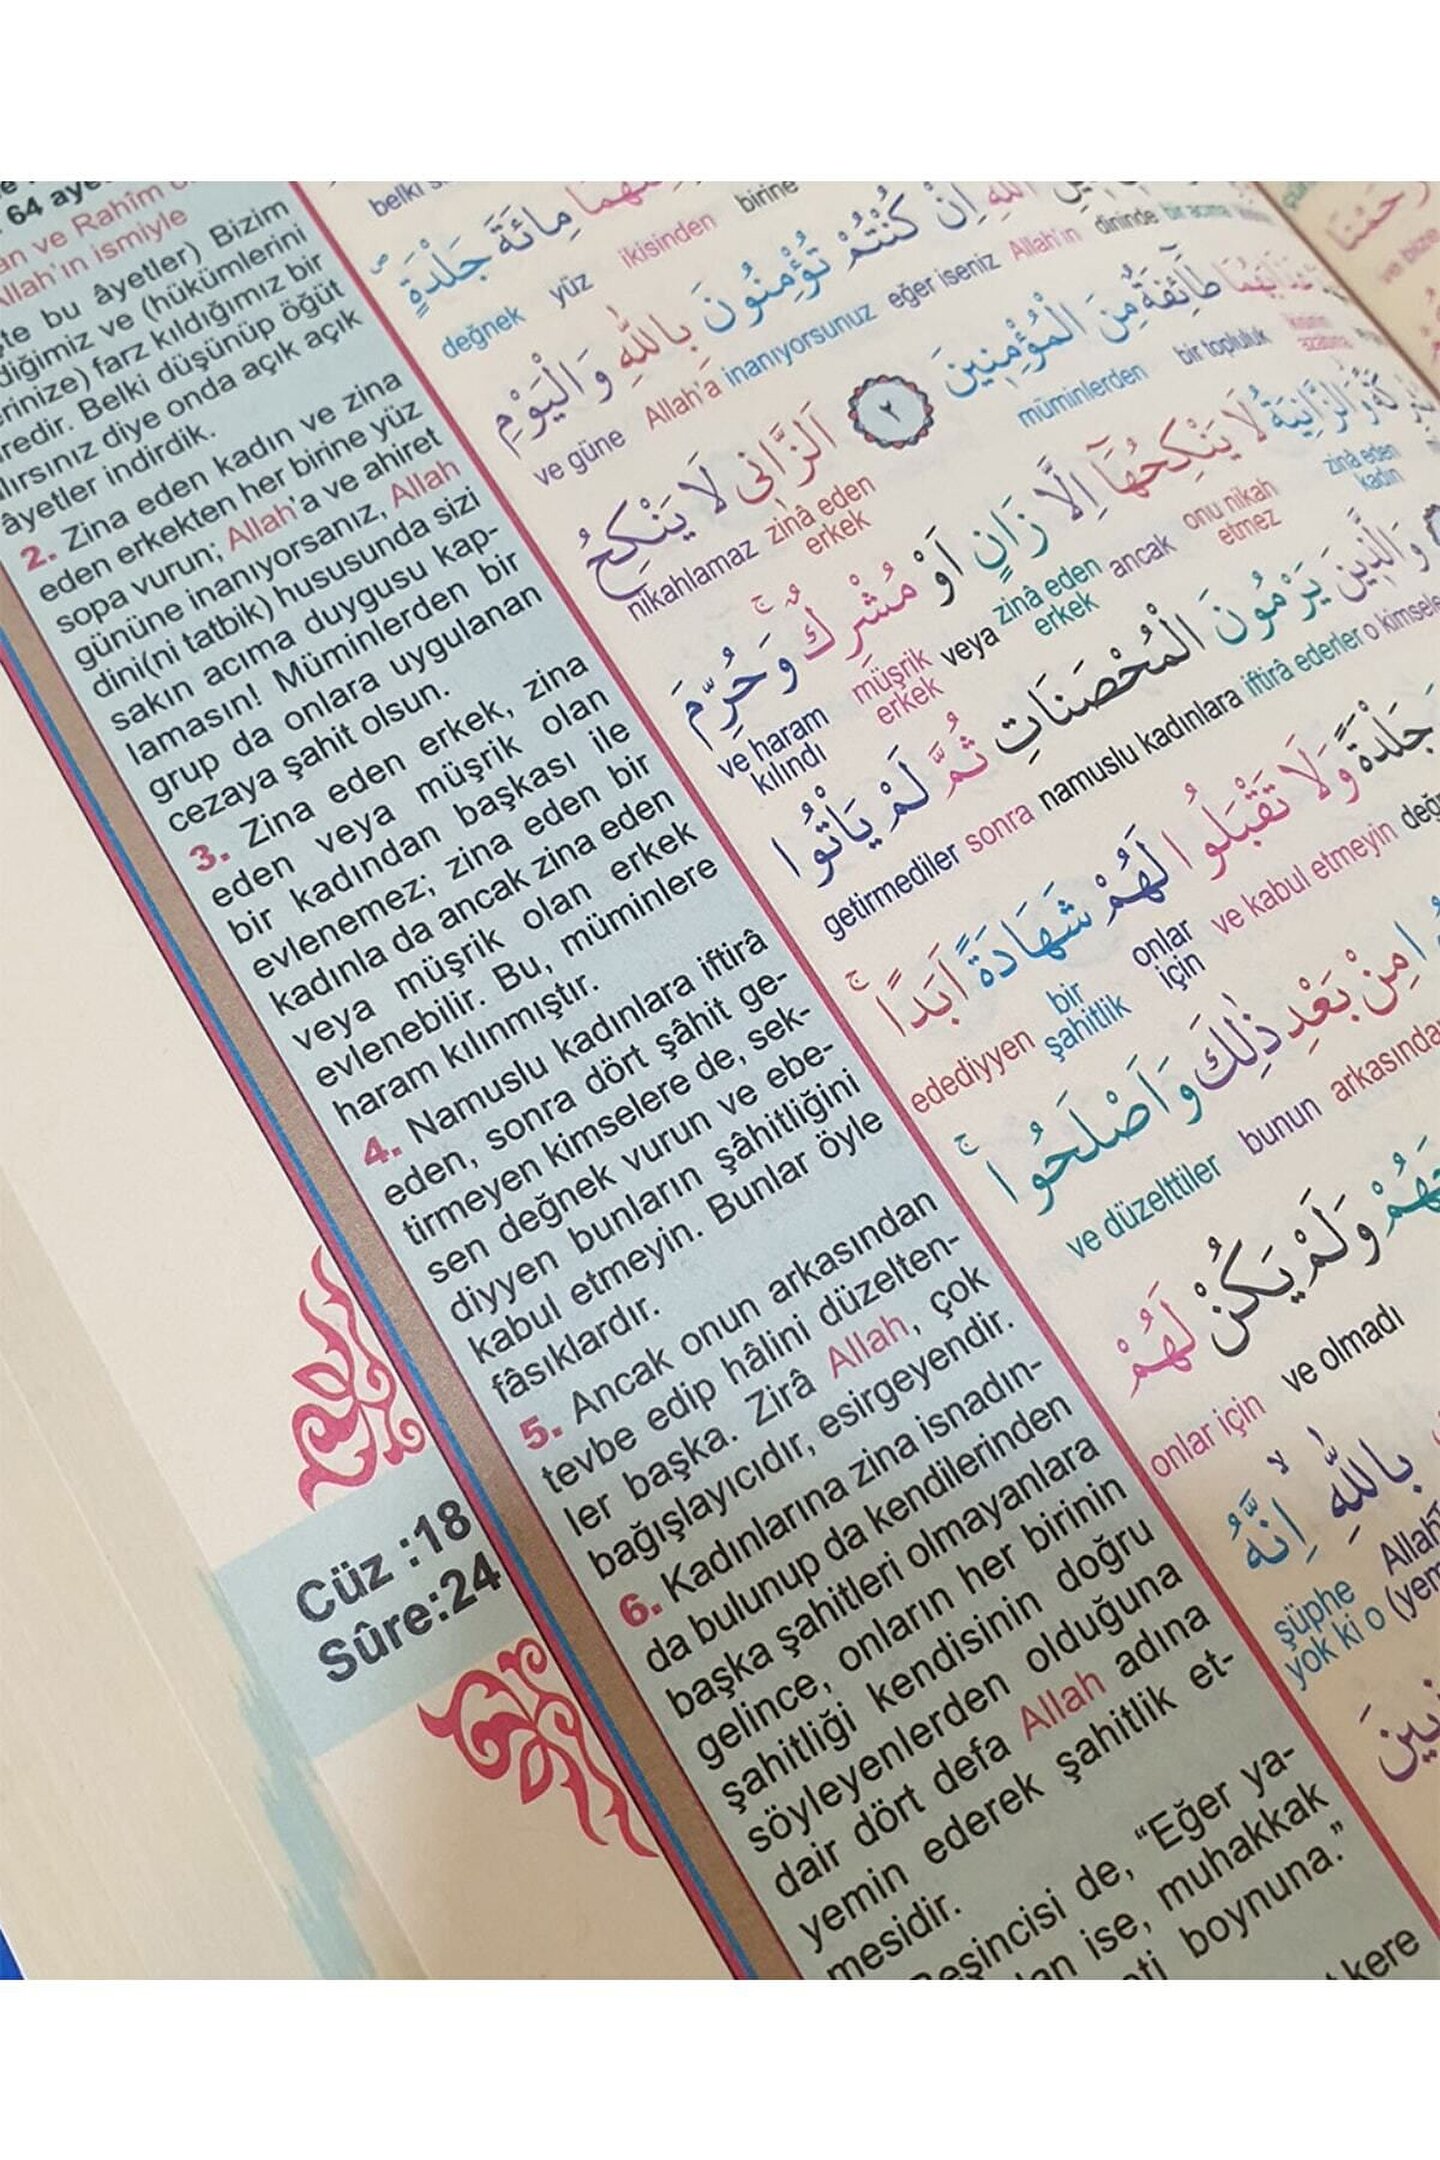 64
an ve Rahîm
Allah'ın ismiyle
bu âyetler) Bizim
diğimiz ve (hükümlerini
farz kıldığımız bir
Belki düşünüp öğüt
diye onda açık açık
âyetler indirdik.
2. Zina eden kadın ve zina
eden erkekten her birine yüz
sopa vurun; Allah'a ve ahiret
gününe inanıyorsanız, Allah
dini(ni tatbik) hususunda sizi
sakın acıma duygusu kap-
lamasın! Müminlerden bir
grup da onlara uygulanan
cezaya şahit olsun.
3. Zina eden erkek, zina
eden veya müşrik olan
bir kadından başkası ile
evlenemez; zina eden bir
kadınla da ancak zina eden
veya müşrik olan erkek
evlenebilir. Bu, müminlere
haram kılınmıştır.
4. Namuslu kadınlara iftirâ
eden, sonra dört şâhit ge-
tirmeyen kimselere de, sek-
sen değnek vurun ve ebe-
diyyen bunların şâhitliğini
kabul etmeyin. Bunlar öyle
fâsıklardır.
5. Ancak onun arkasından
tevbe edip hâlini düzelten-
ler başka. Zirâ Allah, çok
bağışlayıcıdır, esirgeyendir.
6. Kadınlarına zina isnadın-
da bulunup da kendilerinden
başka şahitleri olmayanlara
gelince, onların her birinin
şahitliği kendisinin doğru
söyleyenlerden olduğuna
dair dört defa Allah adına
yemin ederek şahitlik et-
mesidir.
Beşincisi de, “Eğer ya-
ise, muhakkak
boynuna.”
kere
Cüz :18
Sûre:24
belki
مِائَةَ جَلْدَةٍ
birine ikisinden yüz değnek
اِنْ كُنْتُمْ تُؤْمِنُونَ بِاللّٰهِ وَالْيَوْمِ
dininde Allah'ın eğer iseniz inanıyorsunuz Allah'a ve güne
طَٓائِفَةٌ مِنَ الْمُؤْمِنٖينَ ٢ اَلزَّانٖى لَا يَنْكِحُ
bir topluluk müminlerden zinâ eden erkek nikahlamaz
لَا يَنْكِحُهَٓا اِلَّا زَانٍ اَوْ مُشْرِكٌ وَحُرِّمَ
zinâ eden kadın onu nikah etmez ancak zinâ eden erkek veya müşrik erkek ve haram kılındı
وَالَّذٖينَ يَرْمُونَ الْمُحْصَنَاتِ ثُمَّ لَمْ يَأْتُوا
o kimseler iftirâ ederler namuslu kadınlara sonra getirmediler
جَلْدَةً وَلَا تَقْبَلُوا لَهُمْ شَهَادَةً اَبَدًا
ve kabul etmeyin onlar için bir şahitlik edediyyen
مِنْ بَعْدِ ذٰلِكَ وَاَصْلَحُوا
arkasından bunun ve düzelttiler
وَلَمْ يَكُنْ لَهُمْ
ve olmadı onlar için
بِاللّٰهِ اِنَّهُ
şüphe yok ki o